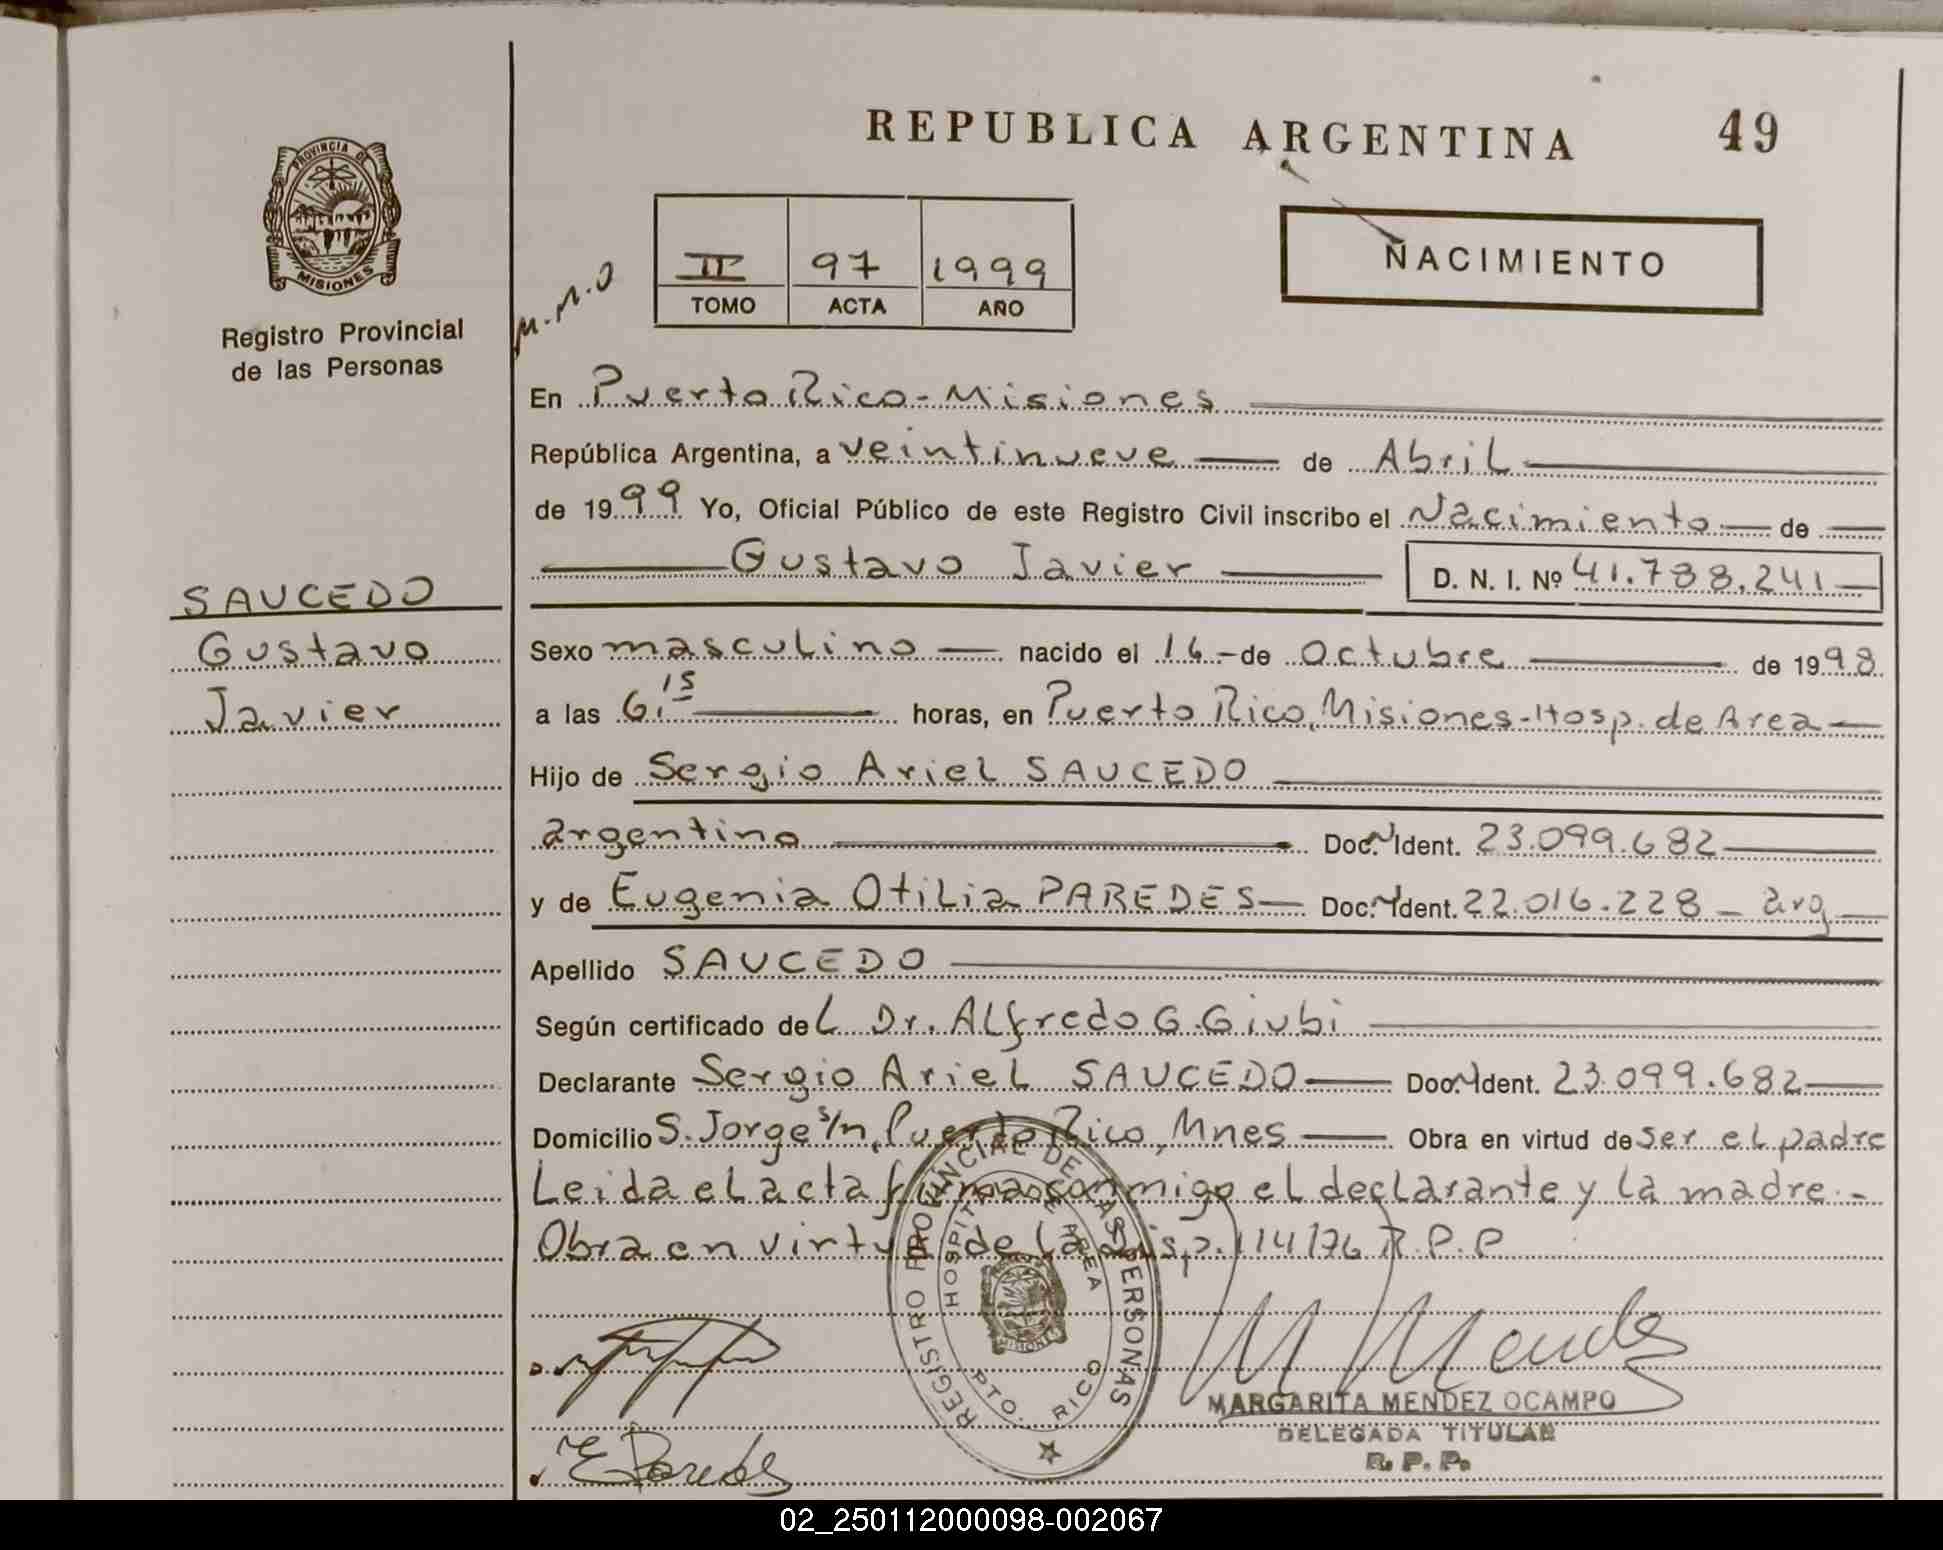 REPUBLICA ARGENTINA 49
PROVINCIA DE
MISIONES
Registro Provincial
de las Personas
M.M.O
II 97 1999
TOMO ACTA AÑO
NACIMIENTO
En Puerto Rico - Misiones
República Argentina, a veintinueve de Abril
de 1999 Yo, Oficial Público de este Registro Civil inscribo el Nacimiento de
Gustavo Javier D. N. I. Nº 41.788.241
SAUCEDO
Gustavo
Javier
Sexo masculino nacido el 16 - de Octubre de 1998
a las 6:15 horas, en Puerto Rico, Misiones - Hosp. de Area
Hijo de Sergio Ariel SAUCEDO
argentino Doc. N Ident. 23.099.682
y de Eugenia Otilia PAREDES Doc. N Ident. 22.016.228 - arg
Apellido SAUCEDO
Según certificado del Dr. Alfredo G. Giubi
Declarante Sergio Ariel SAUCEDO Doc. N Ident. 23.099.682
Domicilio S. Jorge s/n, Puerto Rico, Mnes Obra en virtud de ser el padre
Leida el acta firman conmigo el declarante y la madre. -
Obra en virtud de la Disp. 114/76 R.P.P
REGISTRO PROVINCIAL DE LAS PERSONAS
HOSPITAL DE AREA
MISIONES
PTO. RICO
M Mendez
MARGARITA MENDEZ OCAMPO
DELEGADA TITULAR
R. P. P.
E Paredes
02_250112000098-002067